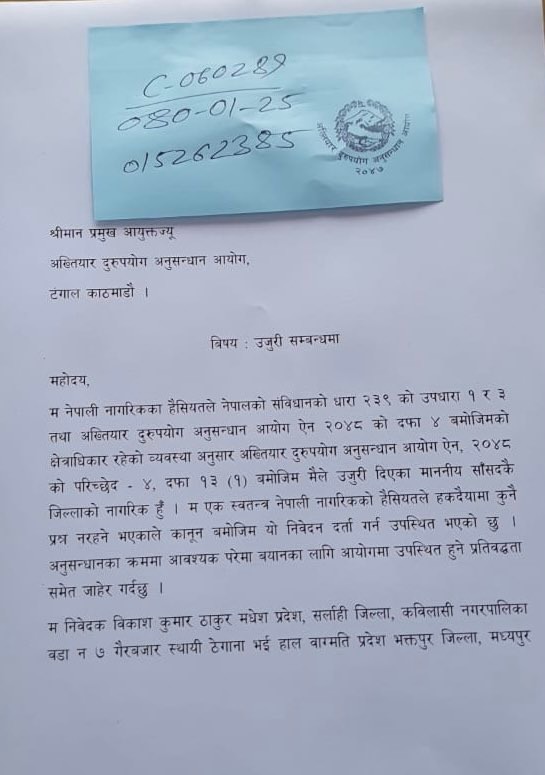 C-060289
080-01-25
015262385
अख्तियार दुरुपयोग अनुसन्धान आयोग
२०४७
श्रीमान प्रमुख आयुक्तज्यू
अख्तियार दुरुपयोग अनुसन्धान आयोग,
टंगाल काठमाडौ ।
विषय : उजुरी सम्बन्धमा
महोदय,
म नेपाली नागरिकका हैसियतले नेपालको संविधानको धारा २३९ को उपधारा १ र ३
तथा अख्तियार दुरुपयोग अनुसन्धान आयोग ऐन २०४८ को दफा ४ बमोजिमको
क्षेत्राधिकार रहेको व्यवस्था अनुसार अख्तियार दुरुपयोग अनुसन्धान आयोग ऐन, २०४८
को परिच्छेद - ४, दफा १३ (१) बमोजिम मैले उजुरी दिएका माननीय साँसदकै
जिल्लाको नागरिक हुँ । म एक स्वतन्त्र नेपाली नागरिकको हैसियतले हकदैयामा कुनै
प्रश्न नरहने भएकाले कानून बमोजिम यो निवेदन दर्ता गर्न उपस्थित भएको छु ।
अनुसन्धानका क्रममा आवश्यक परेमा बयानका लागि आयोगमा उपस्थित हुने प्रतिवद्धता
समेत जाहेर गर्दछु ।
म निवेदक विकाश कुमार ठाकुर मधेश प्रदेश, सर्लाही जिल्ला, कविलासी नगरपालिका
वडा न ७ गैरबजार स्थायी ठेगाना भई हाल वाग्मति प्रदेश भक्तपुर जिल्ला, मध्यपुर